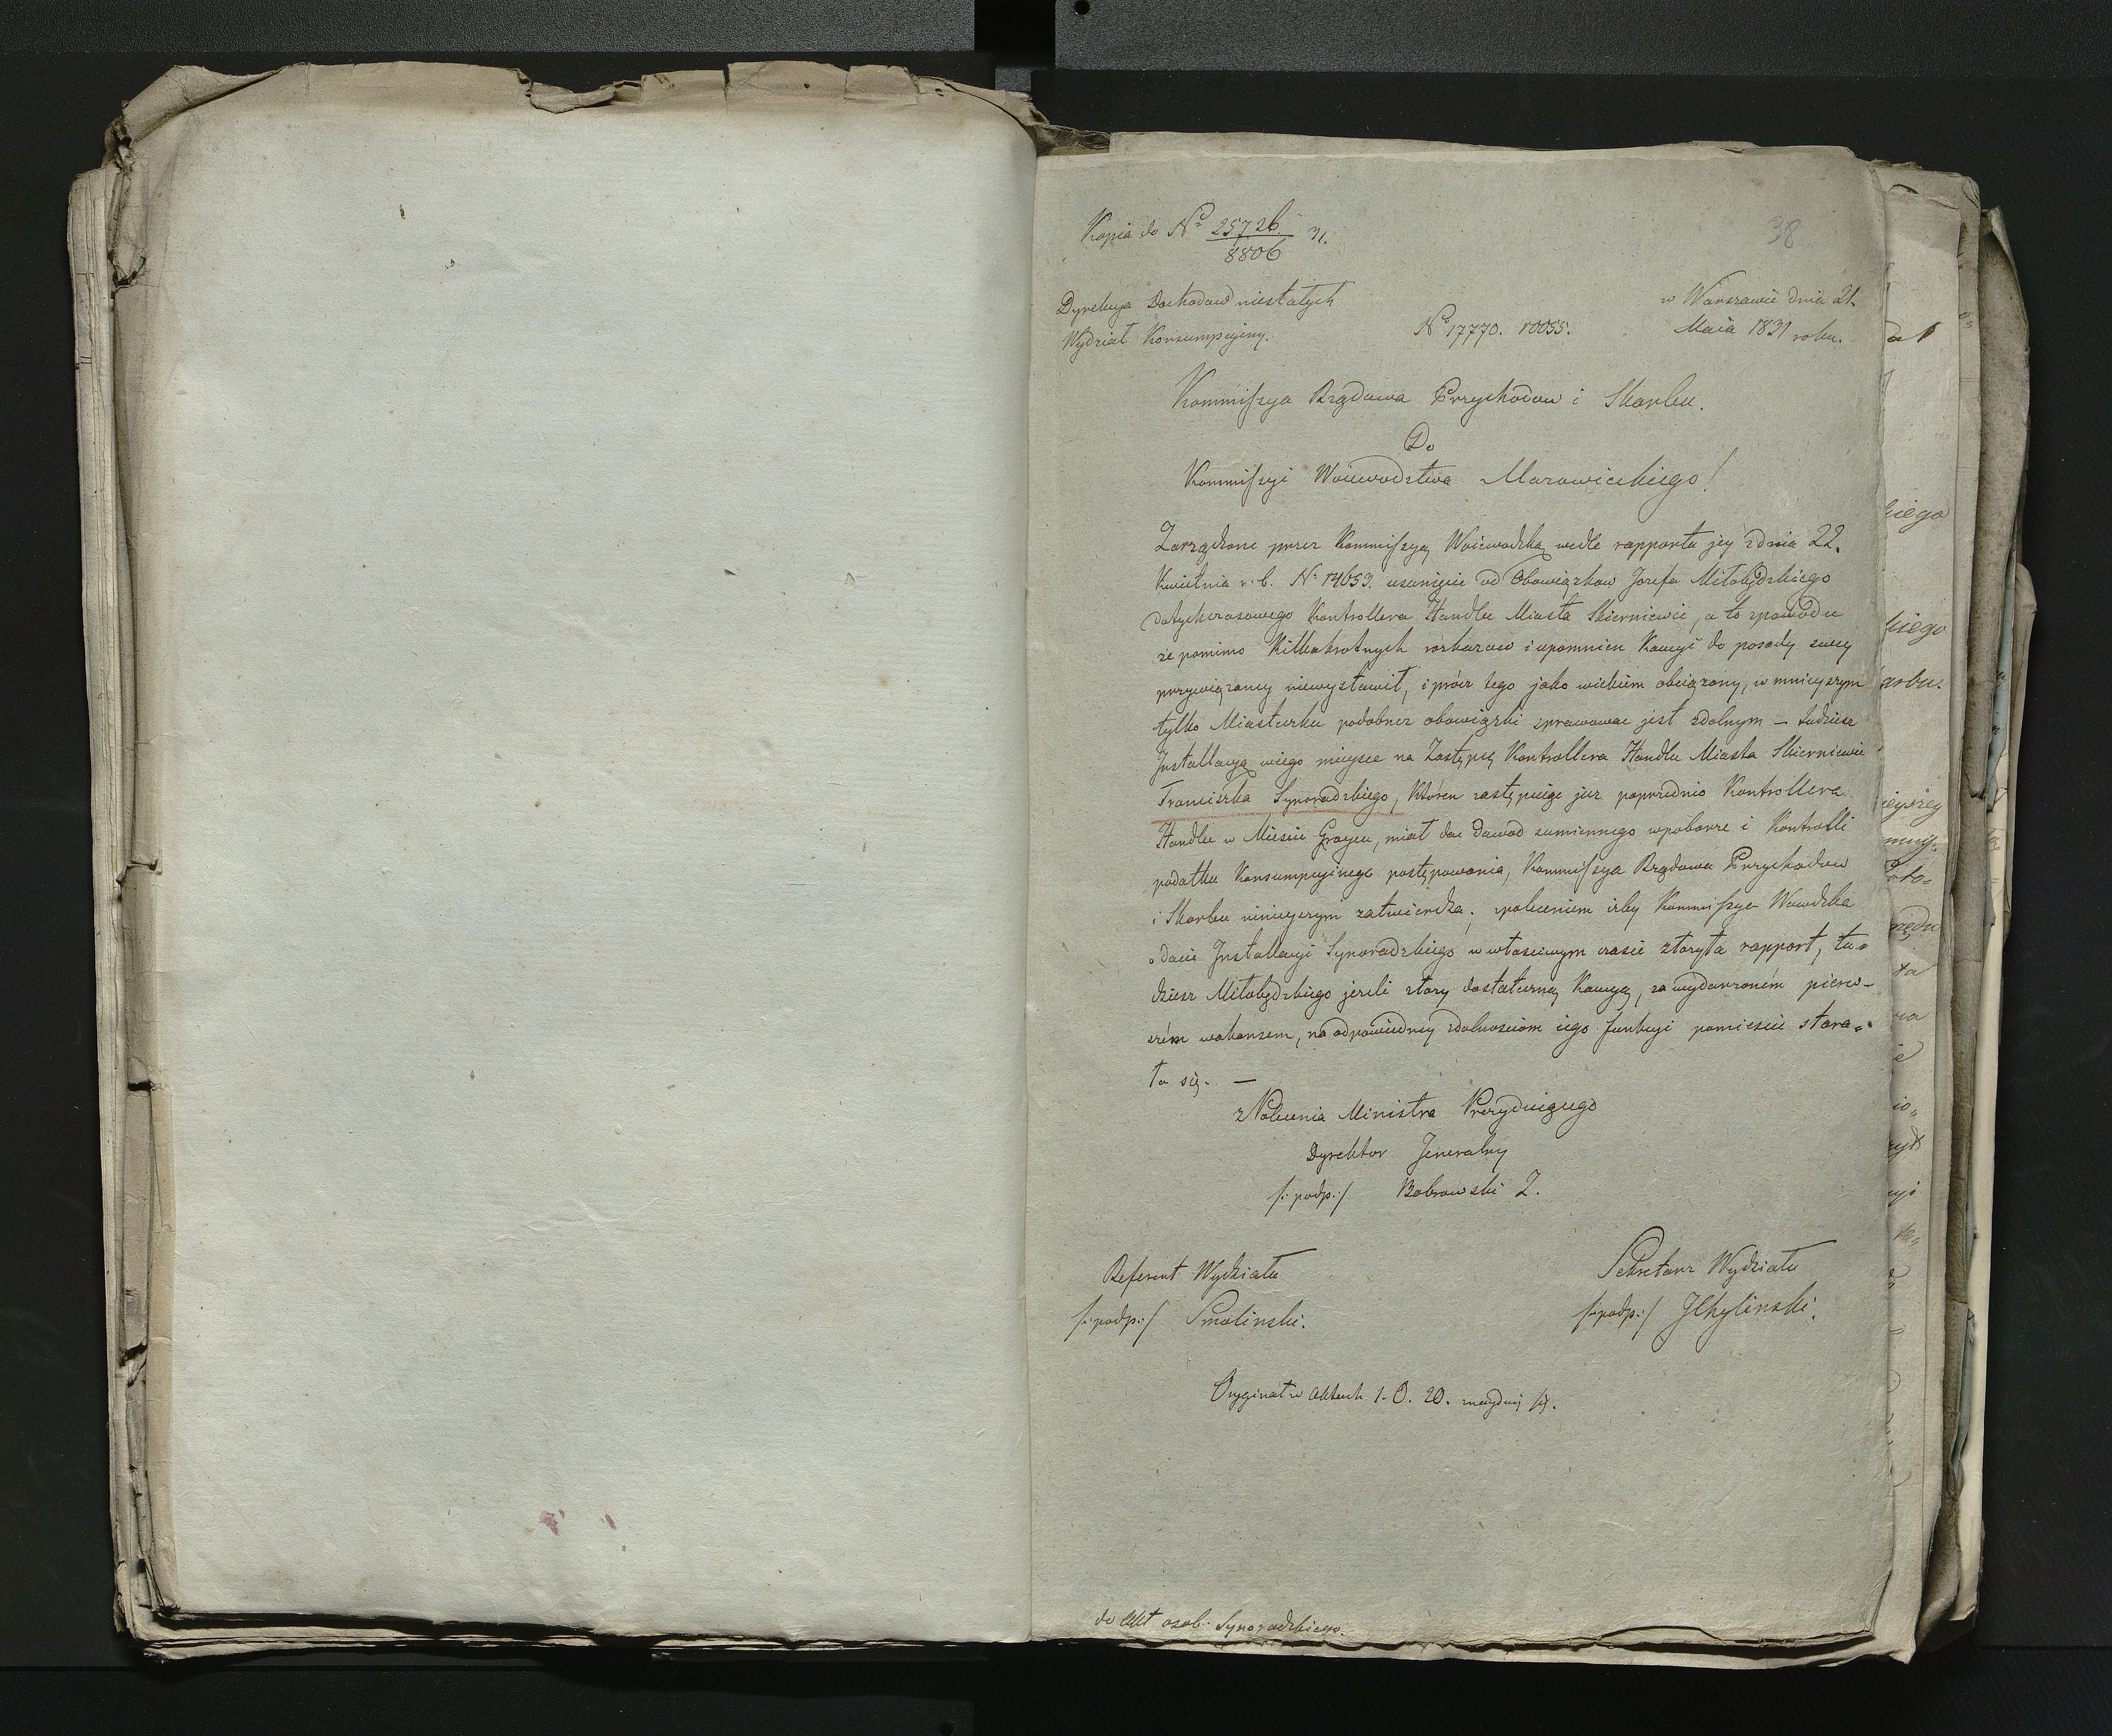 38
Kopia do Nº 25726/8806 31.
Dyrekcya Dochodów niestałych
Wydział Konsumpcyiny.
Nº 17770. 10055.
w Warszawie dnia 21.
Maia 1831 roku.
Kommissya Rządowa Przychodow i Skarbu.
Do
Kommissyi Woiewodztwa Mazowieckiego!
Zarządzone przez Kommissyę Woiewodzką wedle rapportu jey zdnia 22.
Kwietnia r. b. Nº 14653. usunięcie od Obowiązkow Jozefa Miłobędzkiego
dotychczasowego Kontrollera Handlu Miasta Skierniewic, a to zpowodu
że pomimo Kilkakrotnych rozkazow i upomnien Kaucyi do posady swey
przywiązaney niewystawił, i prócz tego jako wiekiem obciążony, w mnieyszym
tylko Miasteczku podobnez obowiązki sprawowac jest zdolnym – tudziesz
Jnstallacyą wiego mieysce na Zastępcę Kontrollera Handlu Miasta Skierniewic
Franciszka Synoradzkiego, Któren zastępuiąc juz poprzednio Kontrollera
Handlu w Miescie Groycu, miał dac dowod sumiennego wpoborze i Kontrolli
podatku Konsumpcyinego postępowania, Kommissya Rządowa Przychodow
i Skarbu ninieyszym zatwierdza; zpoleceniem izby Kommissya Wowdzka
o dacie Jnstallacyi Synoradzkiego w własciwym czasie złozyła rapport, tu=
dziesz Miłobędzkiego jezeli złozy dostateczną Kaucyę, za wydarzoném pierw–
szém wakansem, na odpowiedney zdolnosciom iego funkcyi pomiescic stara=
ła się. —
z Polecenia Ministra Prezyduiącego
Dyrektor Jeneralny
/:podp:/ Bobrowski Z.
Referent Wydziału
/:podp:/ Smolinski.
Sekretarz Wydziału
/:podp:/ JChylinski.
Oryginał w Aktach 1. O. 20. znayduie się.
do Akt osob: Synoradzkiego.